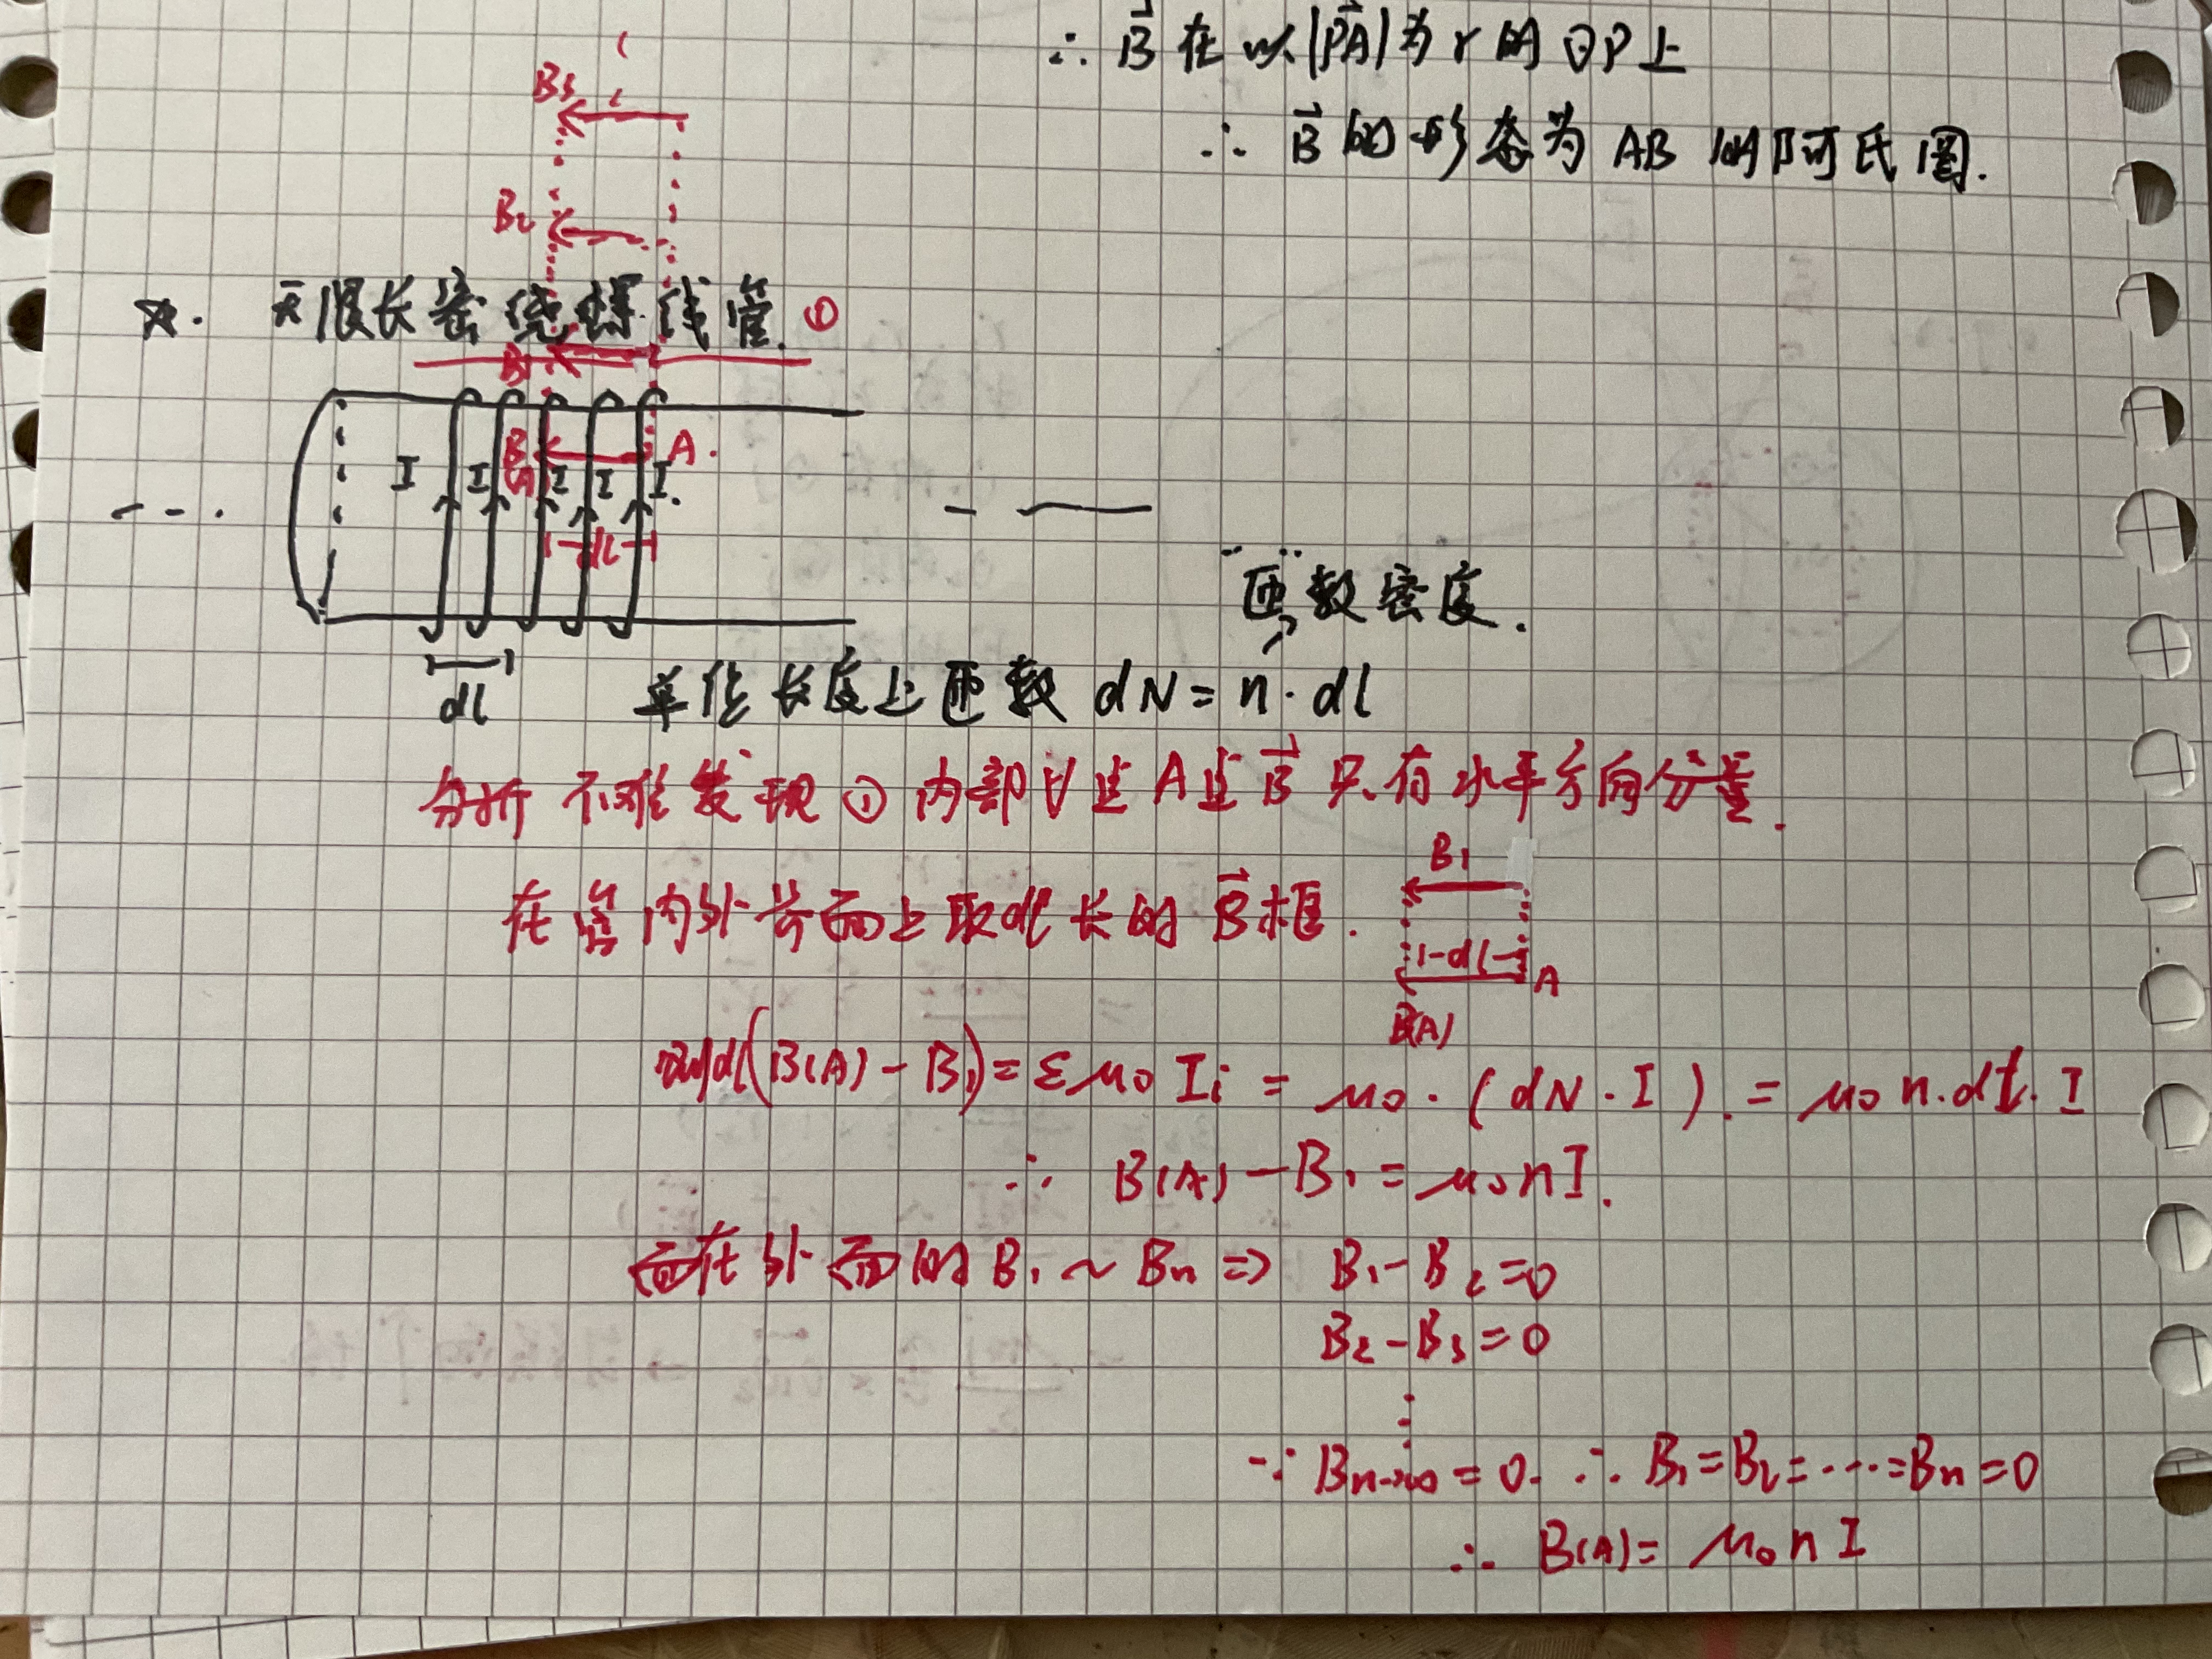 ∴ B⃗ 在以|P⃗A|为r的⊙P上
∴ B⃗ 的形态为 AB 的阿氏圆.
B₃
B₂
☆. 无限长密绕螺线管. ①
B₁
B(A)
A.
I I I I I.
dl
--- — ——
匝数密度.
dl
单位长度上匝数 dN = n · dl
分析不难发现①内部∀点A点B⃗只有水平方向分量.
在管内外界面上取dl长的B⃗框.
B₁
dl
A
B(A)
dl(B(A) - B₁) = Σμ₀ Iᵢ = μ₀ · (dN · I). = μ₀ n·dl· I
∴ B(A) - B₁ = μ₀nI.
而在外面的 B₁ ~ Bn ⇒ B₁ - B₂ = 0
B₂ - B₃ = 0
⋮
∵ Bn→∞ = 0. ∴ B₁ = B₂ = ···· = Bn = 0
∴ B(A) = μ₀ n I